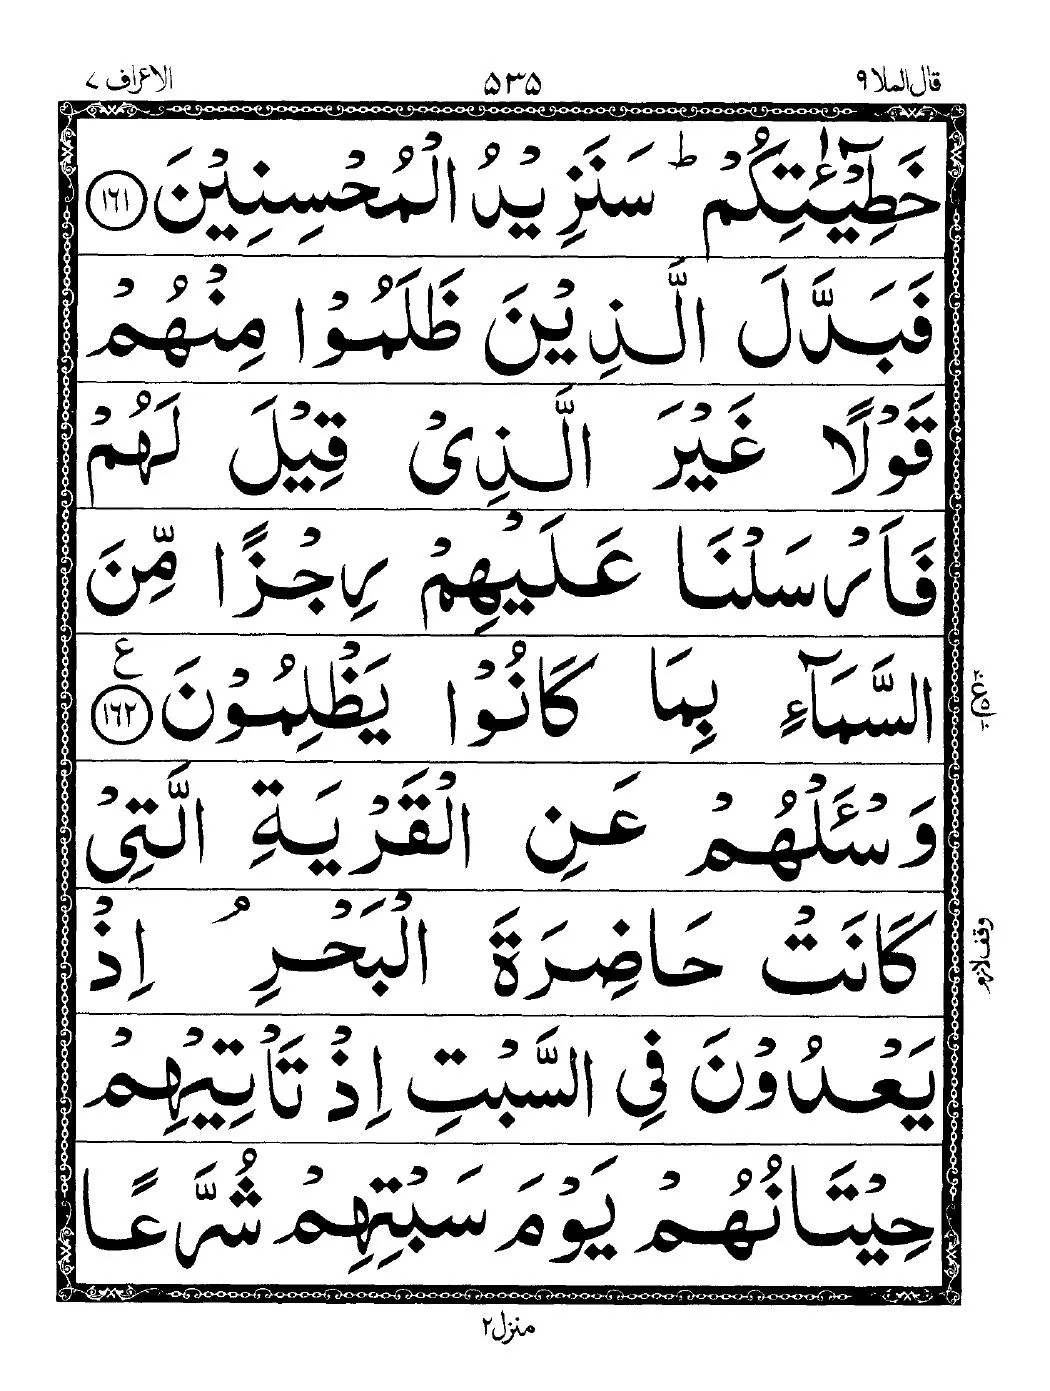 قال الملا ٩
٥٣٥
الاعراف ٧
خَطِيْٓـٰٔتِكُمْ ؕ سَنَزِيْدُ الْمُحْسِنِيْنَ ١٦١
فَبَدَّلَ الَّذِيْنَ ظَلَمُوْا مِنْهُمْ
قَوْلًا غَيْرَ الَّذِىْ قِيْلَ لَهُمْ
فَاَرْسَلْنَا عَلَيْهِمْ رِجْزًا مِّنَ
السَّمَآءِ بِمَا كَانُوْا يَظْلِمُوْنَ ١٦٢ ع
وَسْـَٔلْهُمْ عَنِ الْقَرْيَةِ الَّتِىْ
كَانَتْ حَاضِرَةَ الْبَحْرِ ۘ اِذْ
وقف لازم
يَعْدُوْنَ فِى السَّبْتِ اِذْ تَاْتِيْهِمْ
حِيْتَانُهُمْ يَوْمَ سَبْتِهِمْ شُرَّعًا
منزل ٢